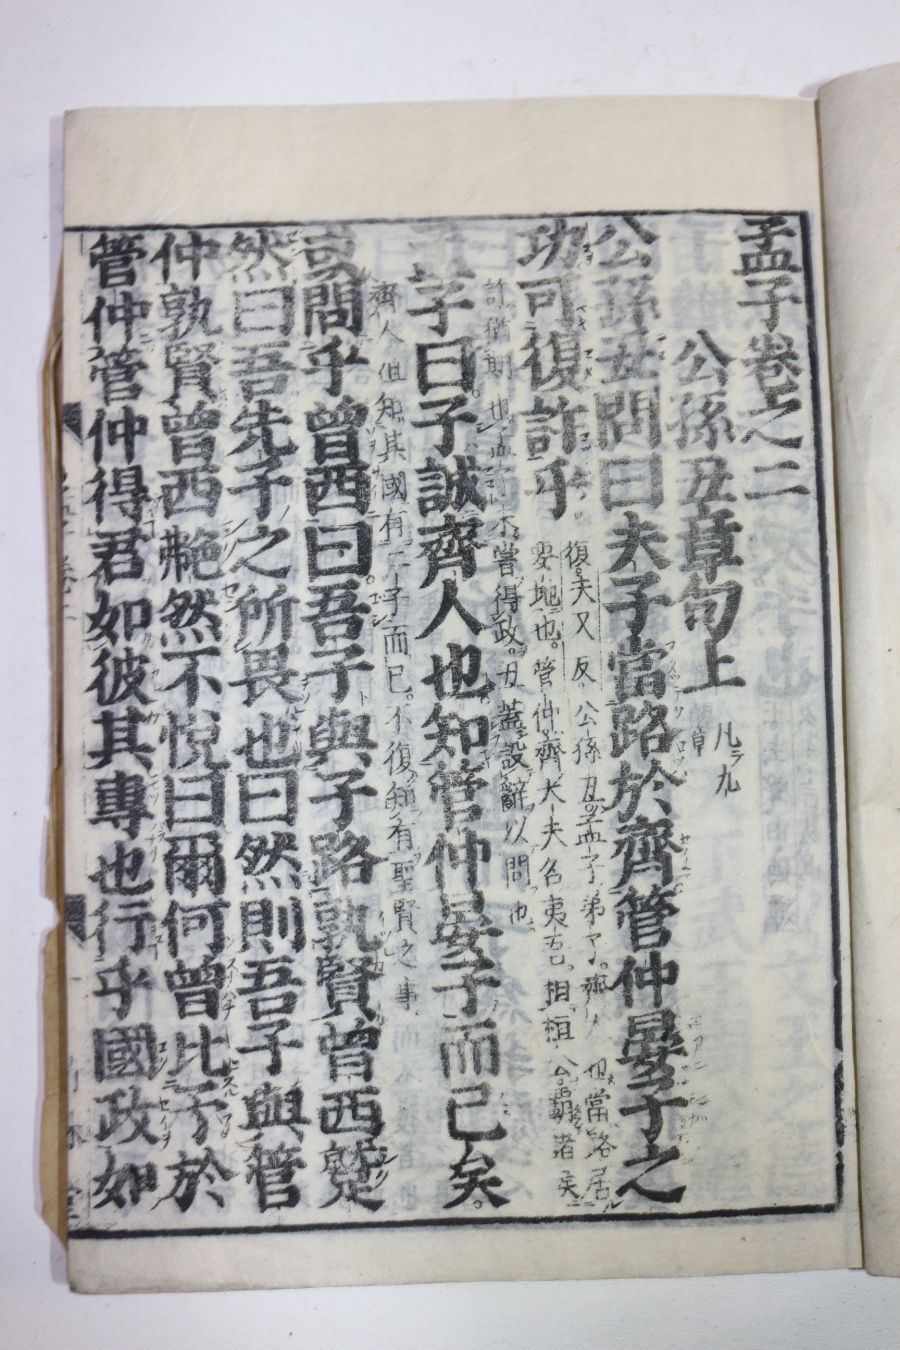 孟子卷之二
公孫丑章句上 凡九章
公孫丑問曰夫子當路於齊管仲晏子之
功可復許乎
復。夫又反。公孫丑孟子弟子。齊人也當路居
要地也。管仲。齊大夫名夷吾。相桓公。覇諸矦
許猶期也孟子未嘗得政。丑蓋設辭以問也
孟子曰子誠齊人也知管仲晏子而已矣。
齊人但知其國有二子而已。不復知有聖賢之事
或問乎曾西曰吾子與子路孰賢曾西蹵
然曰吾先子之所畏也曰然則吾子與管
仲孰賢曾西艴然不悅曰爾何曾比予於
管仲管仲得君如彼其專也行乎國政如